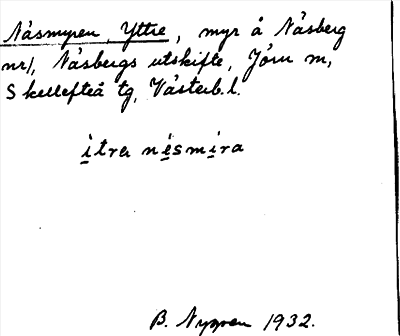 Näsmyren, Yttre, myr å Näsberg
nr 1, Näsbergs utskifte, Jörn sn,
Skellefteå tg, Västerb. l.
itra nésmira
B. Nygren 1932.